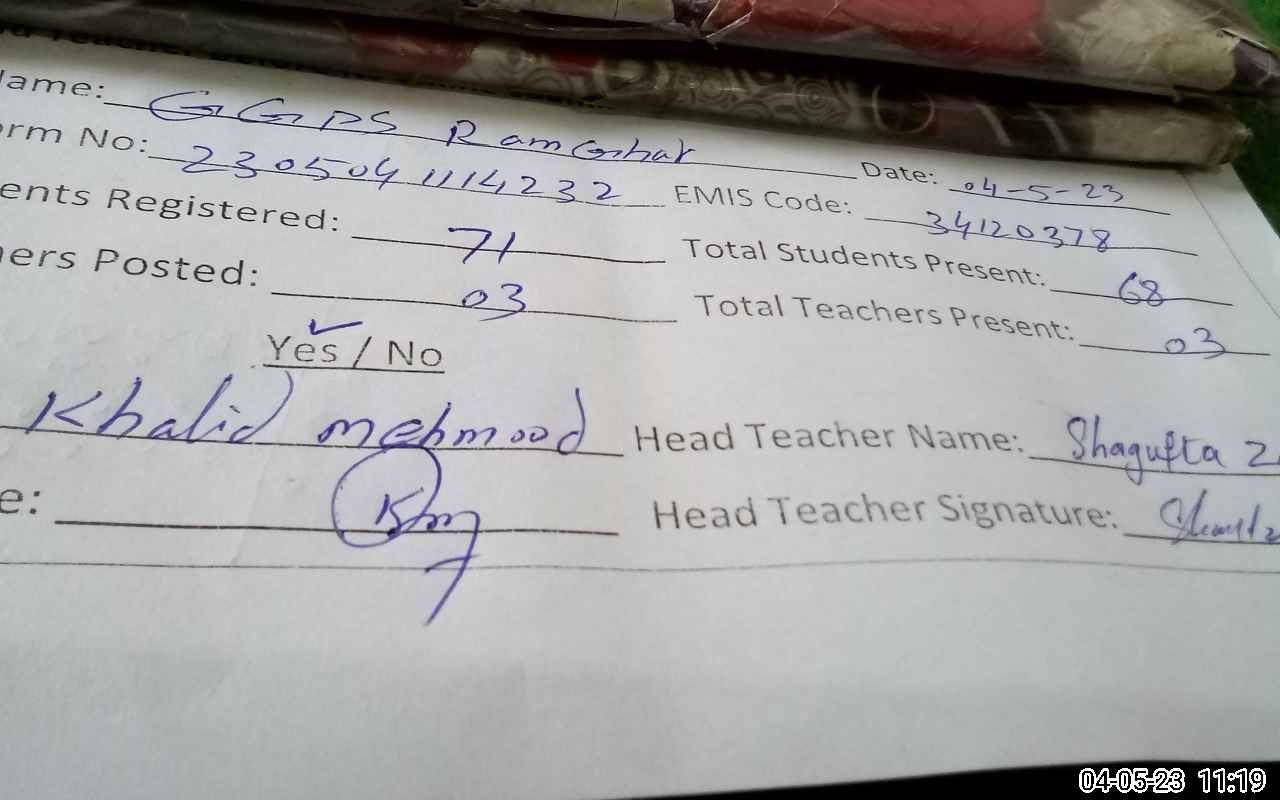 ame: GGPS Ramghar Date: 04-5-23
rm No: 2305041114232 EMIS Code: 34120378
ents Registered: 71 Total Students Present: 68
ers Posted: 03 Total Teachers Present: 03
Yes / No
Khalid mehmood Head Teacher Name: Shagufta
e: Head Teacher Signature:
04-05-23 11:19